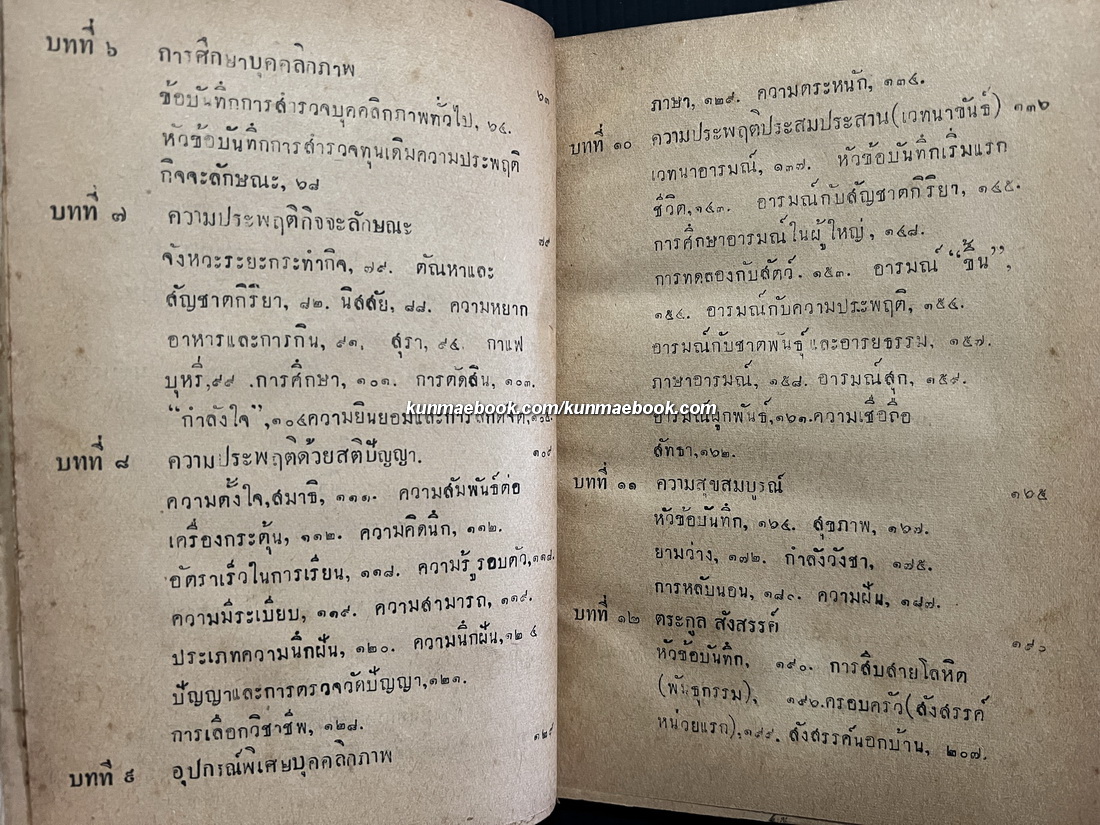 บทที่ ๖ การศึกษาบุคคลิกภาพ ๖๓
ข้อบันทึกการสำรวจบุคคลิกภาพทั่วไป, ๖๔.
หัวข้อบันทึกการสำรวจทุนเดิมความประพฤติ
กิจจะลักษณะ, ๖๘
บทที่ ๗ ความประพฤติกิจจะลักษณะ ๗๙
จังหวะระยะกระทำกิจ, ๗๙. ตัณหาและ
สัญชาตกิริยา, ๘๒. นิสสัย, ๘๘. ความหยาก
อาหารและการกิน, ๙๑, สุรา, ๙๔. กาแฟ
บุหรี่,๙๙ .การศึกษา, ๑๐๑. การตัดสิน, ๑๐๓.
“กำลังใจ”,๑๐๔ความยินยอมและการสกดจิต,๑๐๕.
บทที่ ๘ ความประพฤติด้วยสติปัญญา. ๑๐๙
ความตั้งใจ,สมาธิ, ๑๑๑. ความสัมพันธ์ต่อ
เครื่องกระตุ้น, ๑๑๒. ความคิดนึก, ๑๑๒.
อัตราเร็วในการเรียน, ๑๑๘. ความรู้รอบตัว,๑๑๘.
ความมีระเบียบ, ๑๑๙. ความสามารถ, ๑๑๙.
ประเภทความนึกฝัน, ๑๒๐. ความนึกฝัน,๑๒๔
ปัญญาและการตรวจวัดปัญญา,๑๒๑.
การเลือกวิชาชีพ, ๑๒๘.
บทที่ ๙ อุปกรณ์พิเศษบุคคลิกภาพ ๑๒๙
ภาษา, ๑๒๙. ความตระหนัก, ๑๓๔.
บทที่ ๑๐ ความประพฤติประสมประสาน(เวทนาขันธ์) ๑๓๖
เวทนาอารมณ์, ๑๓๗. หัวข้อบันทึกเริ่มแรก
ชีวิต,๑๔๓. อารมณ์กับสัญชาตกิริยา, ๑๔๕.
การศึกษาอารมณ์ในผู้ใหญ่, ๑๔๘.
การทดลองกับสัตว์. ๑๕๓. อารมณ์ “ขึ้น”,
๑๕๔. อารมณ์กับความประพฤติ, ๑๕๔.
อารมณ์กับชาตพันธุ์และอารยธรรม, ๑๕๗.
ภาษาอารมณ์, ๑๕๘. อารมณ์สุก, ๑๕๙.
kunmaebook.com/kunmaebook.com
อารมณ์ผูกพันธ์,๑๖๑.ความเชื่อถือ
สัทธา,๑๖๒.
บทที่ ๑๑ ความสุขสมบูรณ์ ๑๖๕
หัวข้อบันทึก, ๑๖๔. สุขภาพ, ๑๖๗.
ยามว่าง, ๑๗๒. กำลังวังชา, ๑๗๕.
การหลับนอน, ๑๘๐. ความฝัน, ๑๘๗.
บทที่ ๑๒ ตระกูล สังสรรค์ ๑๙๐
หัวข้อบันทึก, ๑๙๐. การสืบสายโลหิต
(พันธุกรรม), ๑๙๖.ครอบครัว(สังสรรค์
หน่วยแรก),๑๙๙. สังสรรค์นอกบ้าน, ๒๐๗.